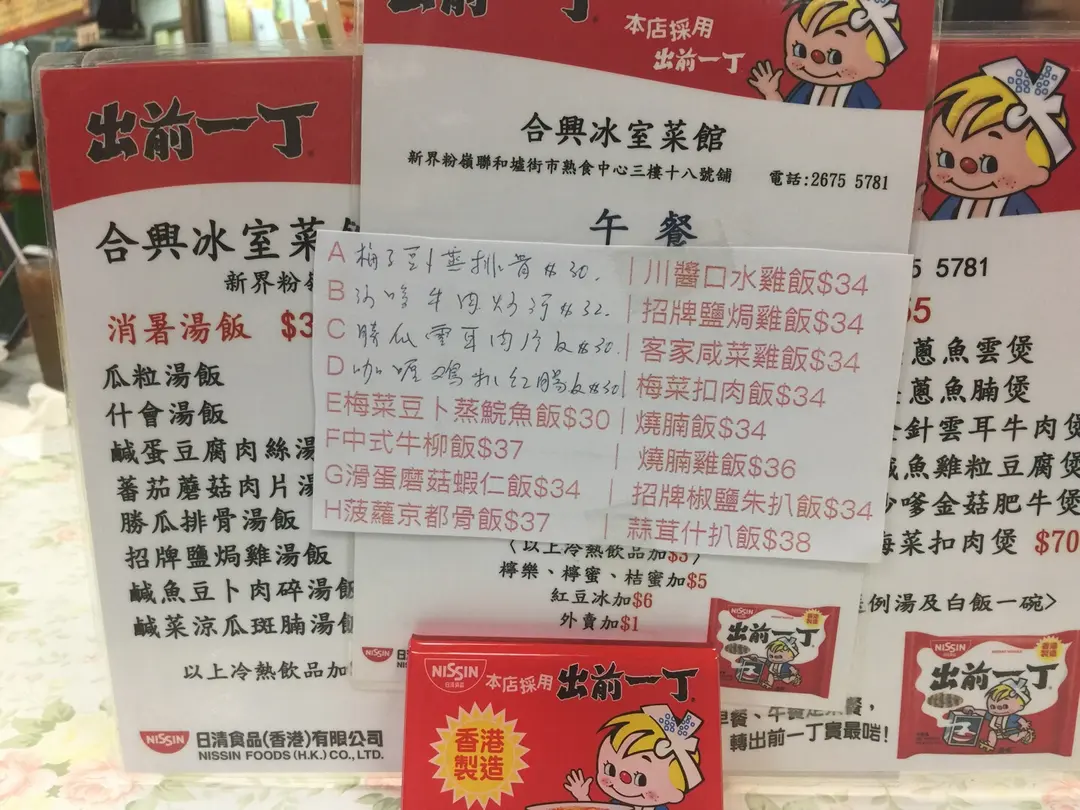 出前一丁
合興冰室菜
新界粉
消暑湯飯 $3
瓜粒湯飯
什會湯飯
鹹蛋豆腐肉絲湯
蕃茄蘑菇肉片湯
勝瓜排骨湯飯
招牌鹽焗雞湯飯
鹹魚豆卜肉碎湯飯
鹹菜涼瓜斑腩湯飯
以上冷熱飲品加
NISSIN 日清食品(香港)有限公司
NISSIN FOODS (H.K.) CO., LTD.
出前一丁
本店採用
出前一丁
合興冰室菜館
新界粉嶺聯和墟街市熟食中心三樓十八號舖 電話:2675 5781
午餐
A 梅子豆卜蒸排骨$30.
B 沙嗲牛肉炒河$32.
C 勝瓜雲耳肉片飯$30.
D 咖喱鷄扒紅腸飯$30
E梅菜豆卜蒸鯇魚飯$30
F中式牛柳飯$37
G滑蛋磨菇蝦仁飯$34
H菠蘿京都骨飯$37
川醬口水雞飯$34
招牌鹽焗雞飯$34
客家咸菜雞飯$34
梅菜扣肉飯$34
燒腩飯$34
燒腩雞飯$36
招牌椒鹽朱扒飯$34
蒜茸什扒飯$38
(以上冷熱飲品加$3)
檸樂、檸蜜、桔蜜加$5
紅豆冰加$6
外賣加$1
NISSIN
出前一丁
香港製造
5 5781
5
蔥魚雲煲
蔥魚腩煲
金針雲耳牛肉煲
鹹魚雞粒豆腐煲
沙嗲金菇肥牛煲
梅菜扣肉煲 $70
例湯及白飯一碗>
早餐、午餐、
轉出前一丁實最啱!
NISSIN
出前一丁
香港製造
NISSIN
日清食品
本店採用 出前一丁
香港
製造